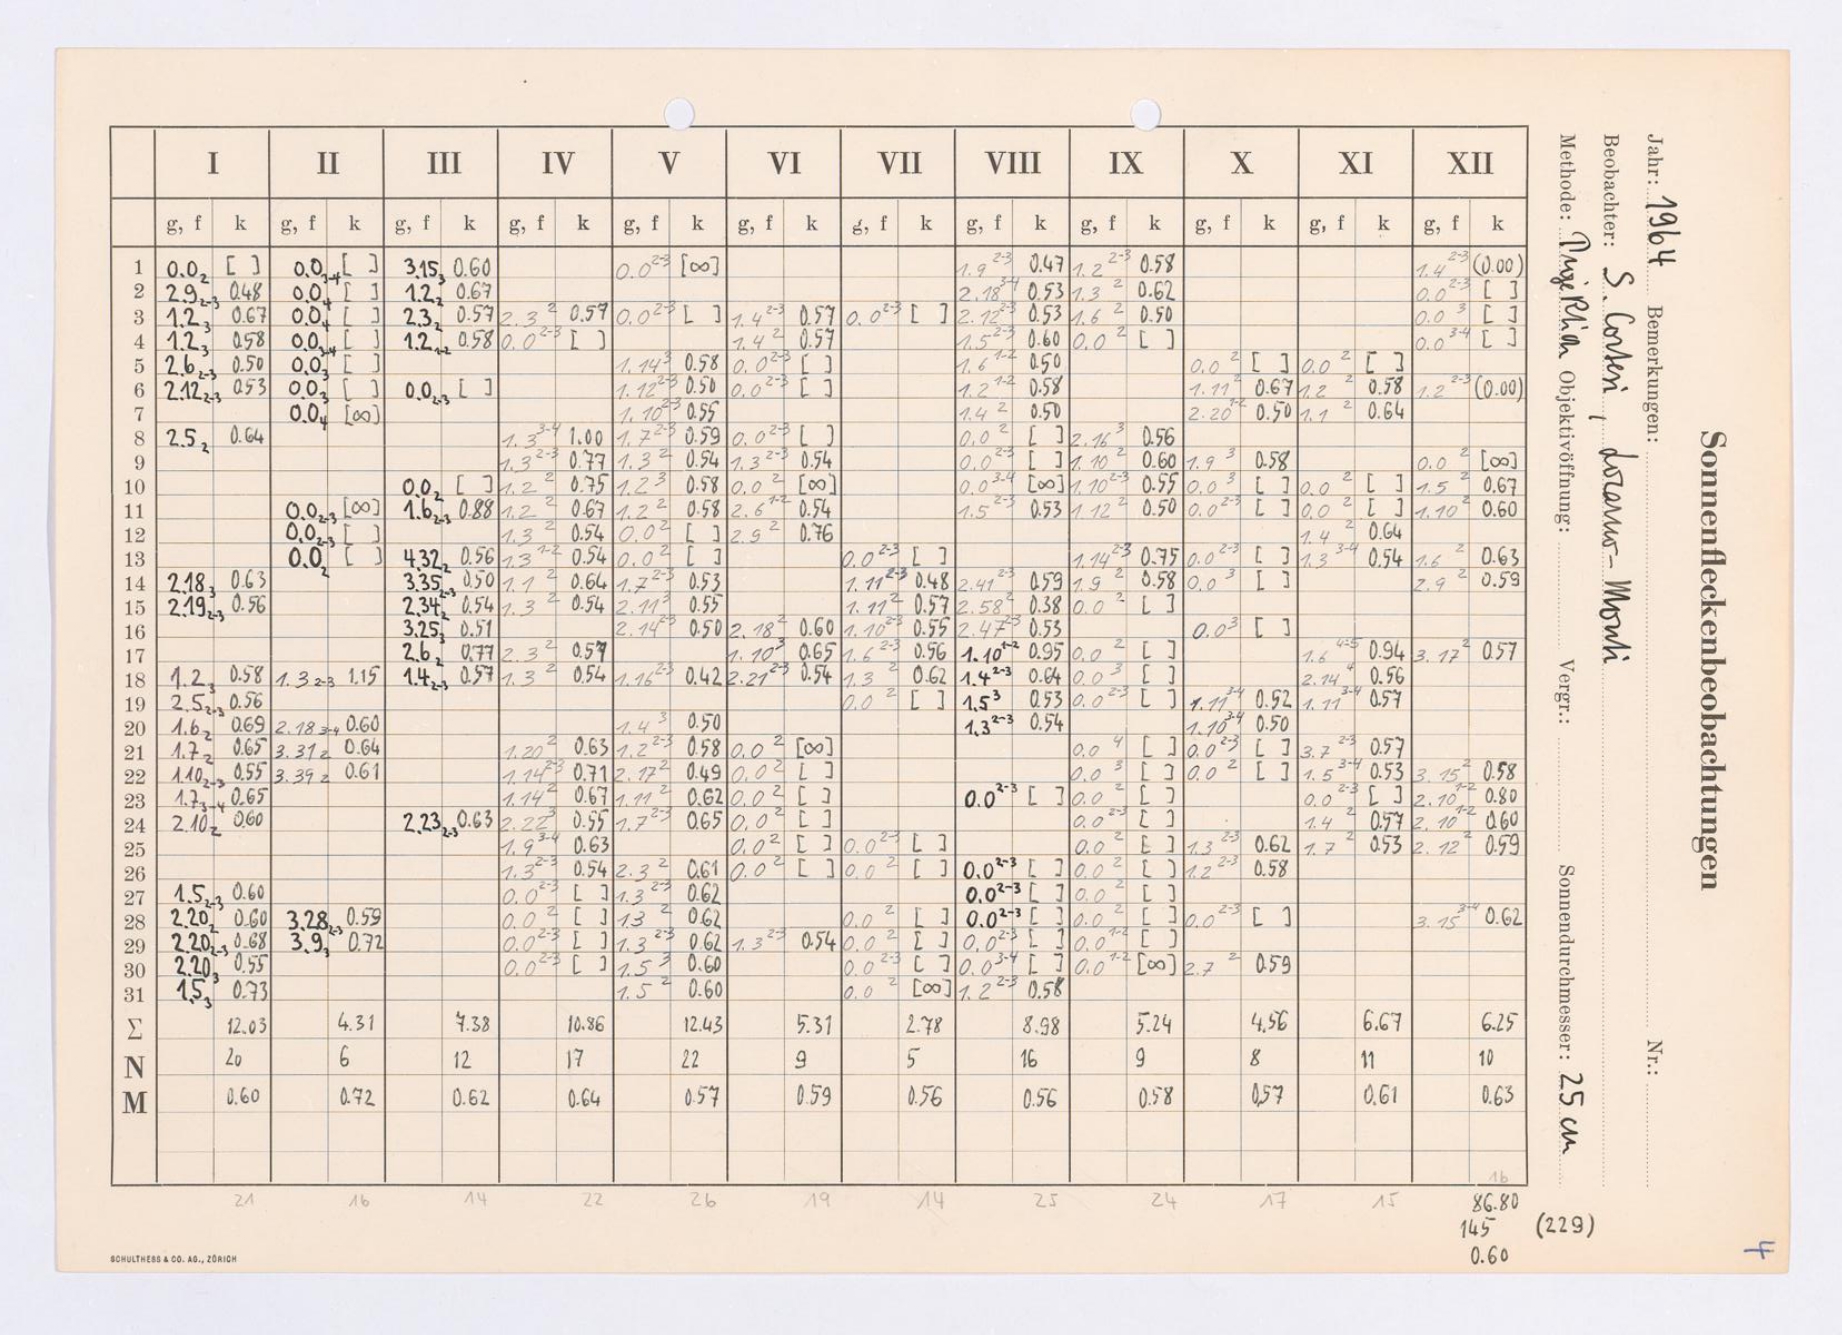 I II III IV V VI VII VIII IX X XI XII
g, f k g, f k g, f k g, f k g, f k g, f k g, f k g, f k g, f k g, f k g, f k g, f k
1 0.0₂ [ ] 0.0₃₋₄ [ ] 3.15₃ 0.60 0.0²⁻³ [∞] 1.9²⁻³ 0.47 1.2²⁻³ 0.58 1.4²⁻³ (0.00)
2 2.9₂₋₃ 0.48 0.0₄ [ ] 1.2₂ 0.67 2.18³⁻⁴ 0.53 1.3² 0.62 0.0²⁻³ [ ]
3 1.2₃ 0.67 0.0₄ [ ] 2.3₂ 0.57 2.3² 0.57 0.0²⁻³ [ ] 1.4²⁻³ 0.57 0.0²⁻³ [ ] 2.12²⁻³ 0.53 1.6² 0.50 0.0³ [ ]
4 1.2₃ 0.58 0.0₃₋₄ [ ] 1.2₁₋₂ 0.58 0.0²⁻³ [ ] 1.4² 0.57 1.5²⁻³ 0.60 0.0² [ ] 0.0³⁻⁴ [ ]
5 2.6₂₋₃ 0.50 0.0₃ [ ] 1.14³ 0.58 0.0²⁻³ [ ] 1.6¹⁻² 0.50 0.0² [ ] 0.0² [ ]
6 2.12₂₋₃ 0.53 0.0₃ [ ] 0.0₂₋₃ [ ] 1.12²⁻³ 0.50 0.0²⁻³ [ ] 1.2¹⁻² 0.58 1.11² 0.67 1.2² 0.58 1.2²⁻³ (0.00)
7 0.0₄ [∞] 1.10²⁻³ 0.55 1.4² 0.50 2.20¹⁻² 0.50 1.1² 0.64
8 2.5₂ 0.64 1.3³⁻⁴ 1.00 1.7²⁻³ 0.59 0.0²⁻³ [ ] 0.0² [ ] 2.16³ 0.56
9 1.3²⁻³ 0.77 1.3² 0.54 1.3²⁻³ 0.54 0.0²⁻³ [ ] 1.10² 0.60 1.9³ 0.58 0.0² [∞]
10 0.0₂ [ ] 1.2² 0.75 1.2³ 0.58 0.0² [∞] 0.0³⁻⁴ [∞] 1.10²⁻³ 0.55 0.0³ [ ] 0.0² [ ] 1.5² 0.67
11 0.0₂₋₃ [∞] 1.6₂₋₃ 0.88 1.2² 0.67 1.2² 0.58 2.6¹⁻² 0.54 1.5²⁻³ 0.53 1.12² 0.50 0.0²⁻³ [ ] 0.0² [ ] 1.10² 0.60
12 0.0₂₋₃ [ ] 1.3² 0.54 0.0² [ ] 2.9² 0.76 1.4² 0.64
13 0.0₂ [ ] 4.32₂ 0.56 1.3¹⁻² 0.54 0.0² [ ] 0.0²⁻³ [ ] 1.14²⁻³ 0.75 0.0²⁻³ [ ] 1.3³⁻⁴ 0.54 1.6² 0.63
14 2.18₃ 0.63 3.35₂₋₃ 0.50 1.1² 0.64 1.7²⁻³ 0.53 1.11²⁻³ 0.48 2.41²⁻³ 0.59 1.9² 0.58 0.0³ [ ] 2.9² 0.59
15 2.19₂₋₃ 0.56 2.34₂ 0.54 1.3² 0.54 2.11³ 0.55 1.11² 0.57 2.58² 0.38 0.0² [ ]
16 3.25₃ 0.51 2.14²⁻³ 0.50 2.18² 0.60 1.10²⁻³ 0.55 2.47²⁻³ 0.53 0.0³ [ ]
17 2.6₂ 0.77 2.3² 0.57 1.10³ 0.65 1.6²⁻³ 0.56 1.10¹⁻² 0.95 0.0² [ ] 1.6⁴⁻⁵ 0.94 3.17² 0.57
18 1.2₃ 0.58 1.3₂₋₃ 1.15 1.4₂₋₃ 0.57 1.3² 0.54 1.16²⁻³ 0.42 2.21²⁻³ 0.54 1.3² 0.62 1.4²⁻³ 0.64 0.0³ [ ] 2.14⁴ 0.56
19 2.5₂₋₃ 0.56 0.0² [ ] 1.5³ 0.53 0.0²⁻³ [ ] 1.11³⁻⁴ 0.52 1.11³⁻⁴ 0.57
20 1.6₂ 0.69 2.18₃₋₄ 0.60 1.4³ 0.50 1.3²⁻³ 0.54 1.10³⁻⁴ 0.50
21 1.7₂ 0.65 3.31₂ 0.64 1.20² 0.63 1.2²⁻³ 0.58 0.0² [∞] 0.0⁴ [ ] 0.0²⁻³ [ ] 3.7²⁻³ 0.57
22 1.10₂₋₃ 0.55 3.39₂ 0.61 1.14²⁻³ 0.71 2.17² 0.49 0.0² [ ] 0.0³ [ ] 0.0² [ ] 1.5³⁻⁴ 0.53 3.15² 0.58
23 1.7₃₋₄ 0.65 1.14² 0.67 1.11² 0.62 0.0² [ ] 0.0²⁻³ [ ] 0.0² [ ] 0.0²⁻³ [ ] 2.10¹⁻² 0.80
24 2.10₂ 0.60 2.23₂₋₃ 0.63 2.22³ 0.55 1.7²⁻³ 0.65 0.0² [ ] 0.0²⁻³ [ ] 1.4² 0.57 2.10¹⁻² 0.60
25 1.9³⁻⁴ 0.63 0.0² [ ] 0.0²⁻³ [ ] 0.0² [ ] 1.3²⁻³ 0.62 1.7² 0.53 2.12² 0.59
26 1.3²⁻³ 0.54 2.3² 0.61 0.0² [ ] 0.0² [ ] 0.0²⁻³ [ ] 0.0² [ ] 1.2²⁻³ 0.58
27 1.5₂₋₃ 0.60 0.0²⁻³ [ ] 1.3²⁻³ 0.62 0.0²⁻³ [ ] 0.0² [ ]
28 2.20₂ 0.60 3.28₂₋₃ 0.59 0.0² [ ] 1.3² 0.62 0.0² [ ] 0.0²⁻³ [ ] 0.0² [ ] 0.0²⁻³ [ ] 3.15³⁻⁴ 0.62
29 2.20₂₋₃ 0.68 3.9₃ 0.72 0.0²⁻³ [ ] 1.3²⁻³ 0.62 1.3²⁻³ 0.54 0.0² [ ] 0.0²⁻³ [ ] 0.0¹⁻² [ ]
30 2.20₃ 0.55 0.0²⁻³ [ ] 1.5³ 0.60 0.0²⁻³ [ ] 0.0³⁻⁴ [ ] 0.0¹⁻² [∞] 2.7² 0.59
31 1.5₃ 0.73 1.5² 0.60 0.0² [∞] 1.2²⁻³ 0.58
Σ 12.03 4.31 7.38 10.86 12.43 5.31 2.78 8.98 5.24 4.56 6.67 6.25
N 20 6 12 17 22 9 5 16 9 8 11 10
M 0.60 0.72 0.62 0.64 0.57 0.59 0.56 0.56 0.58 0.57 0.61 0.63
16
21 16 14 22 26 19 14 25 24 17 15 86.80
145 (229)
0.60
SCHULTHESS & CO. AG., ZÜRICH
Sonnenfleckenbeobachtungen
Jahr: 1964 Bemerkungen: Nr.:
Beobachter: S. Cortesi, Locarno-Monti
Methode: Projektion Objektivöffnung: Vergr.: Sonnendurchmesser: 25 cm